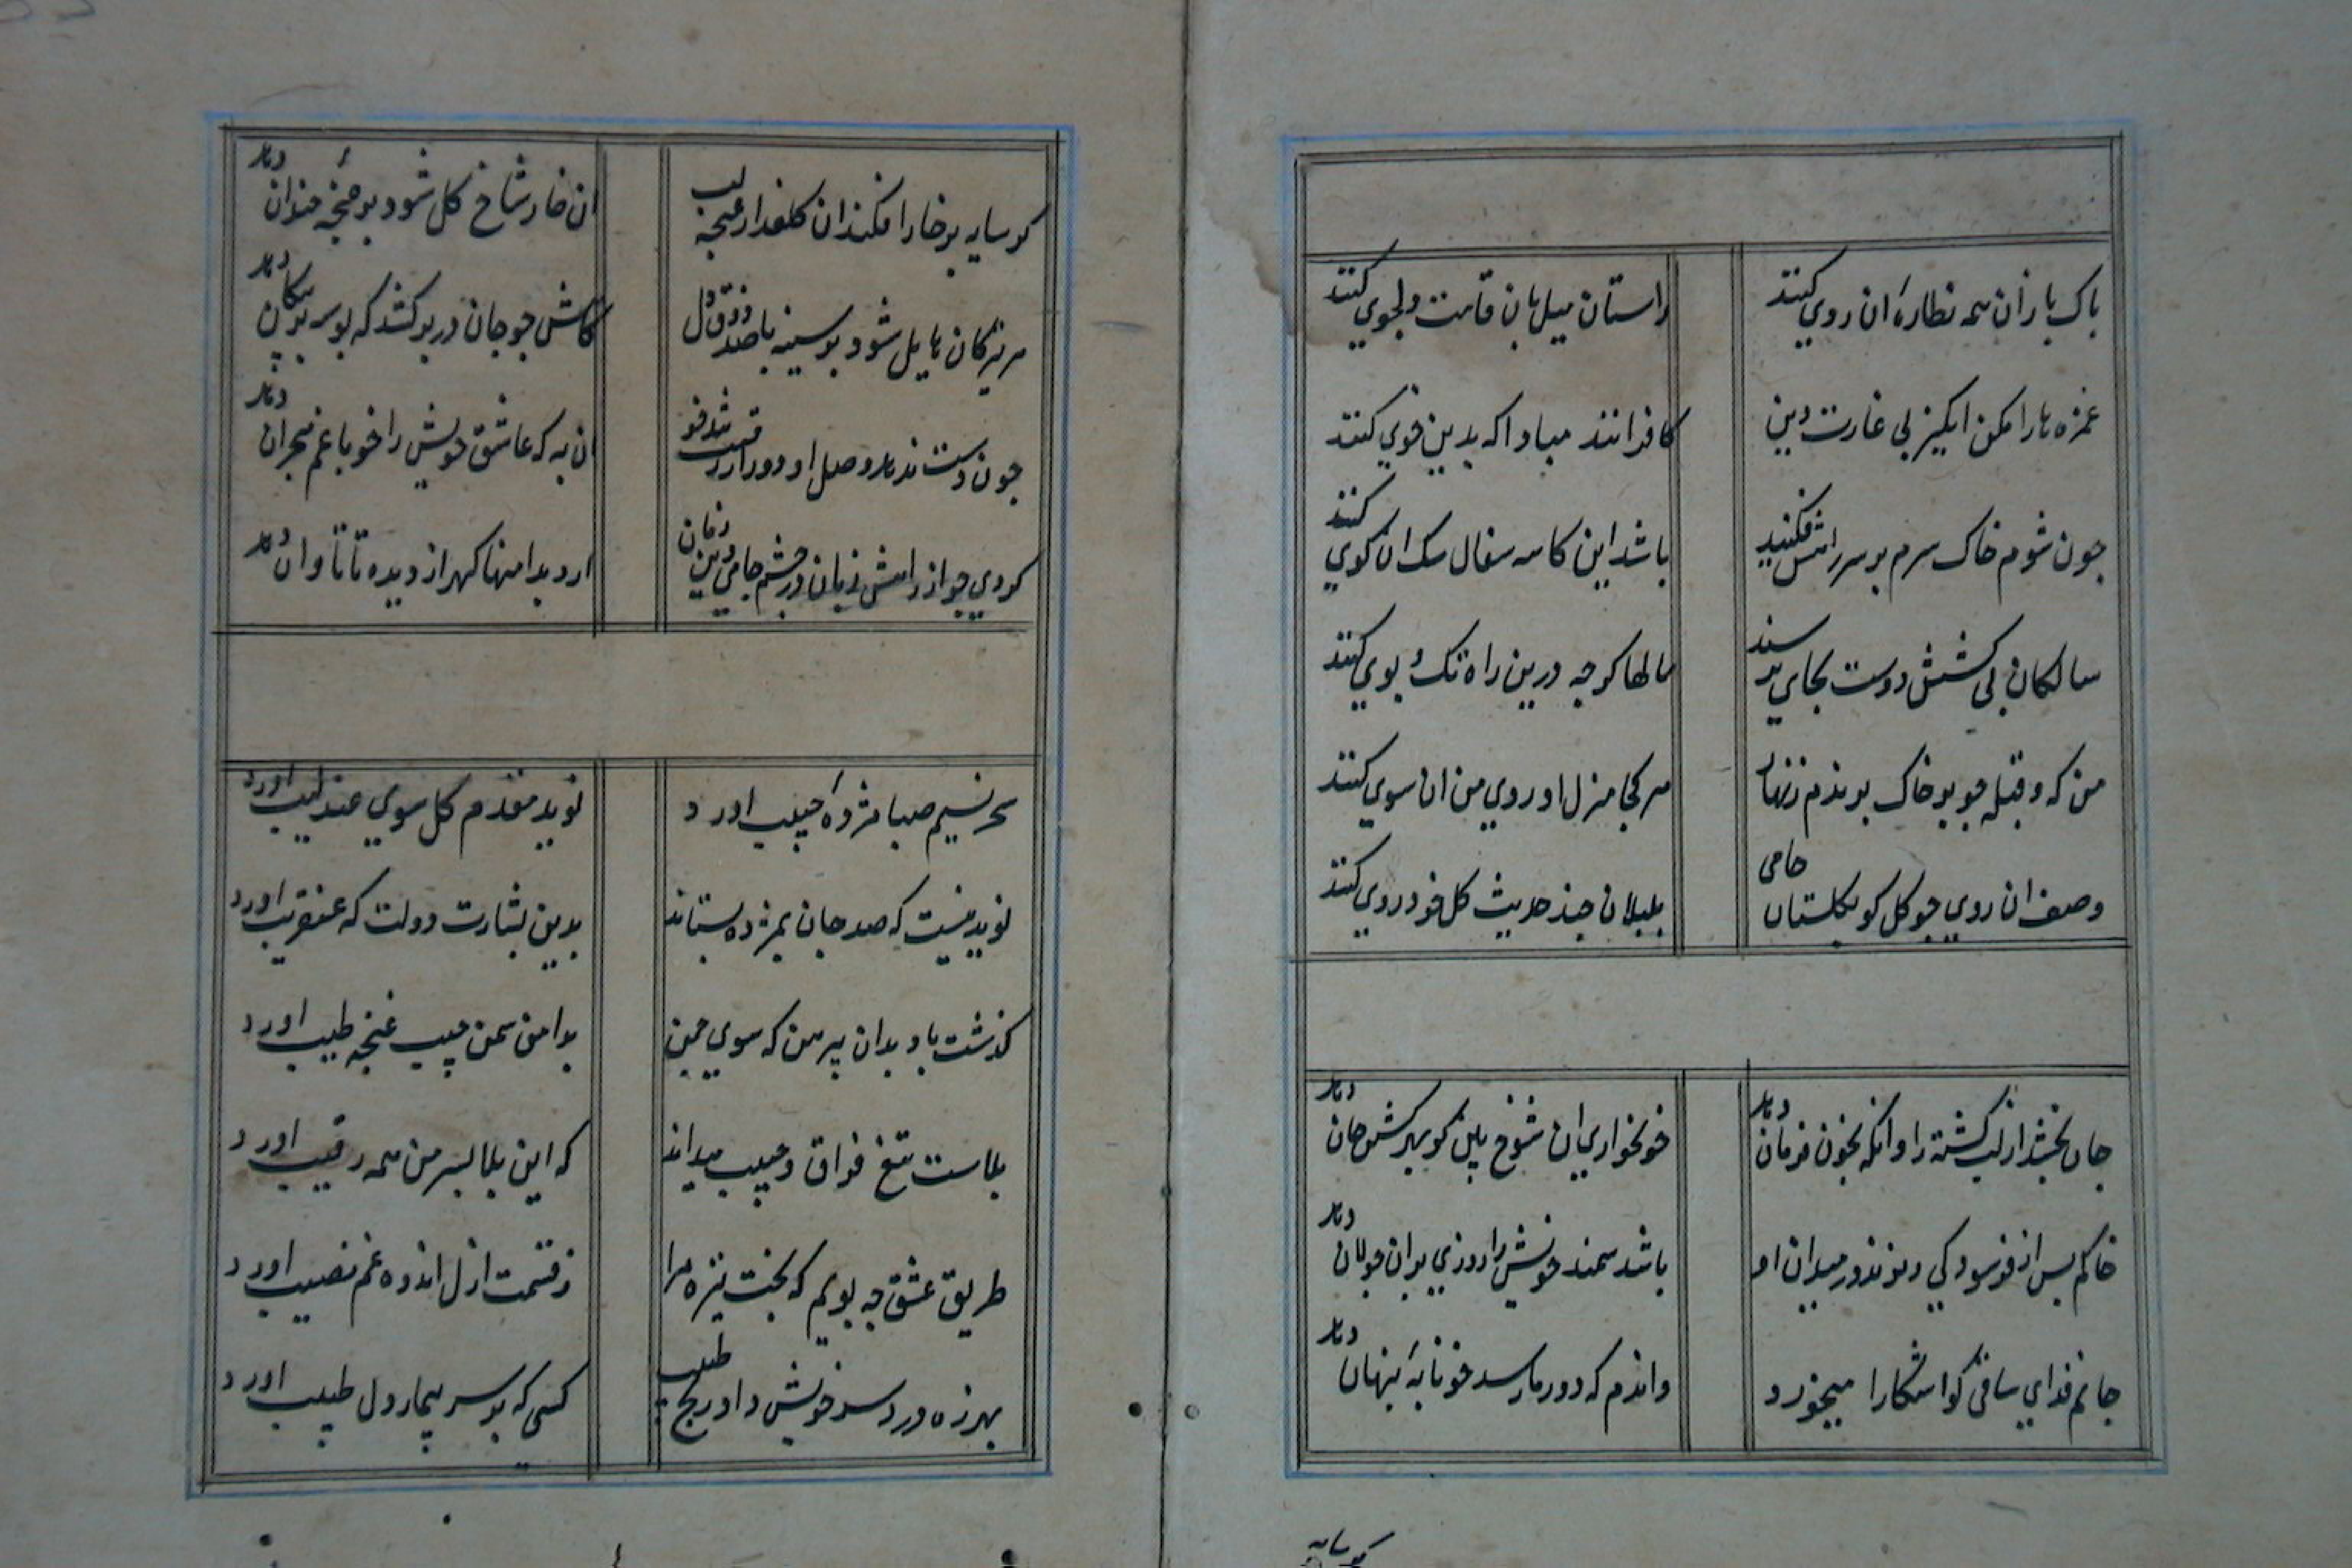 باک بازان همه نظارۀ ان روی کنند
راستان میل بان قامت دلجوی کنند
غمزه ها را مکن انکیز پی غارت دین
کافرانند مبادا که بدین خوی کنند
جون شوم خاک سرم بر سر راهش فکنید
باشد این کاسه سفال سک ان کوی کنند
سالکان بی کشش دوست بجای نرسند
سالها کرجه درین راه تک و پوی کنند
من که و قبله جو بر خاک برندم زنهار
هر کجا منزل او روی من ان سوی کنند
وصف ان روی جو کل کو بکلستان جامی
بلبلان جند حدیث کل خودروی کنند
جان بخشد از لب کشته را وانکه بخون فرمان دهد
خونخواری ان شوخ بین کو بهر کشتن جان دهد
خاکم بس از فرسودکی ریزند در میدان او
باشد سمند خویش را روزی بران جولان دهد
جانم فدای ساقی کو اشکارا میخورد
واندم که دور ما رسد خونابۀ پنهان دهد
کر سایه
کر سایه بر خار افکند ان کلعذار غنجه لب
ان خار شاخ کل شود بر غنجۀ خندان دهد
هر تیر کان مایل شود بر سینه با صد ذوق دل
کاهش جو جان در بر کشد که بوسه بر پیکان دهد
جون دست ندهد وصل او دور از رقیب
ان به که عاشق خویش را خو با غم هجران دهد
کردی جو از راهش زیان در جشم جامی
ارد بدامنها کهر از دیده تا تاوان دهد
سحر نسیم صبا مژدۀ حبیب اورد
نوید مقدم کل سوی عندلیب اورد
نوید نیست که صد جان بمژده بستاند
بدین بشارت دولت که عنقریب اورد
کذشت باد بدان پیرهن که سوی جمن
بدامن سمن جیب غنجه طیب اورد
بلاست تیغ فراق و حبیب میداند
که این بلا بسر من همه رقیب اورد
طریق عشق جه پویم که بخت تیره مرا
ز قسمت ازل اندوه غم نصیب اورد
بهرزه درد سر خویش داد و رنج طبیب
کسی که بر سر بیمار دل طبیب اورد